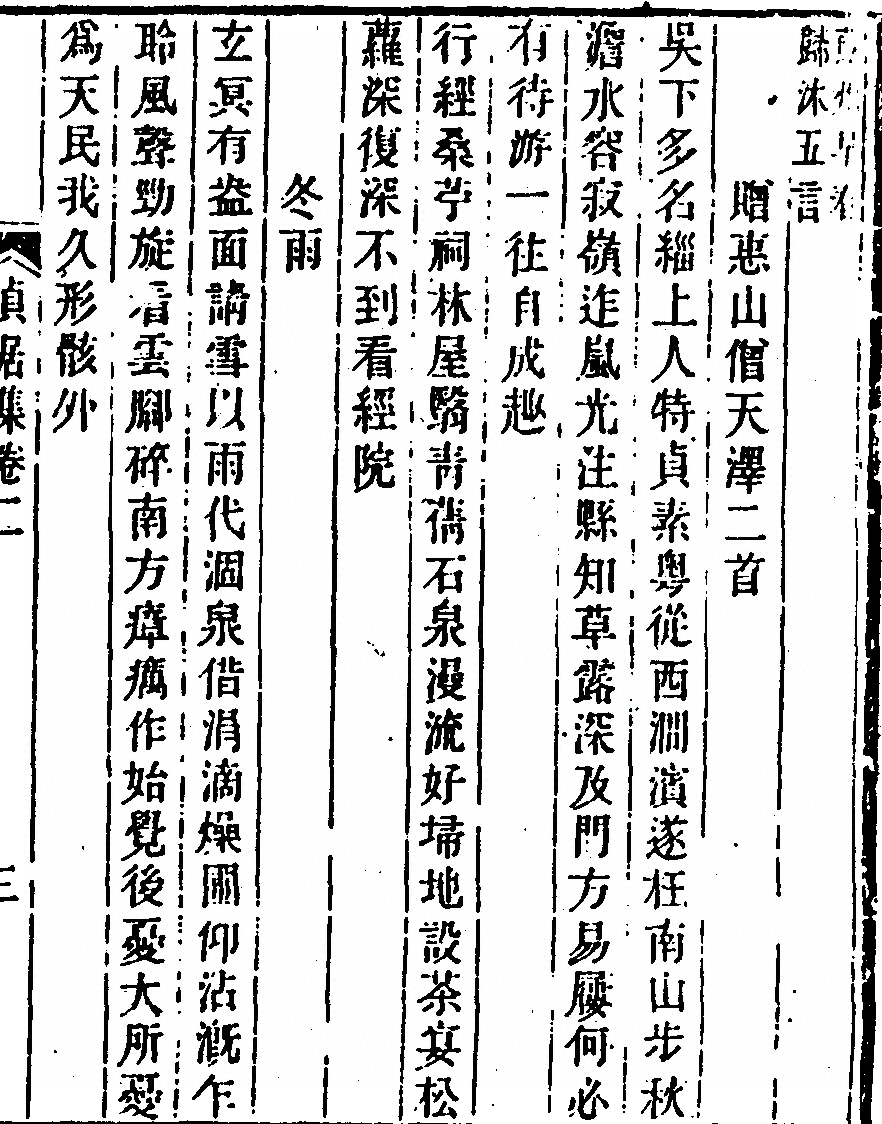 歸沐五言
贈惠山僧天澤二首
吳下多名緇上人特貞素粤從西澗濱遂枉南山步秋
澹水容寂嶺迮嵐光注縣知草露深及門方易屨何必
有待游一往自成趣
行經桑苧祠林屋翳青蒨石泉漫流好埽地設茶宴松
蘿深復深不到看經院
冬雨
玄冥有盎面講雪以雨代涸泉偕涓滴燥圃仰沾漑乍
聆風聲勁旋看雲腳碎南方瘴癘作始覺後憂大所憂
為天民我久形骸外
貞居集卷二
三